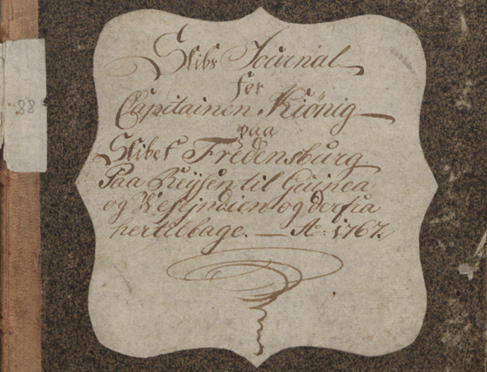 88
Skibs Journal
for
Capitainen Kiönig
paa
Skibet Fredensburg
Paa Reysen til Guinea
og Vestindien og derfra
hertilbage. — Ao: 1767.